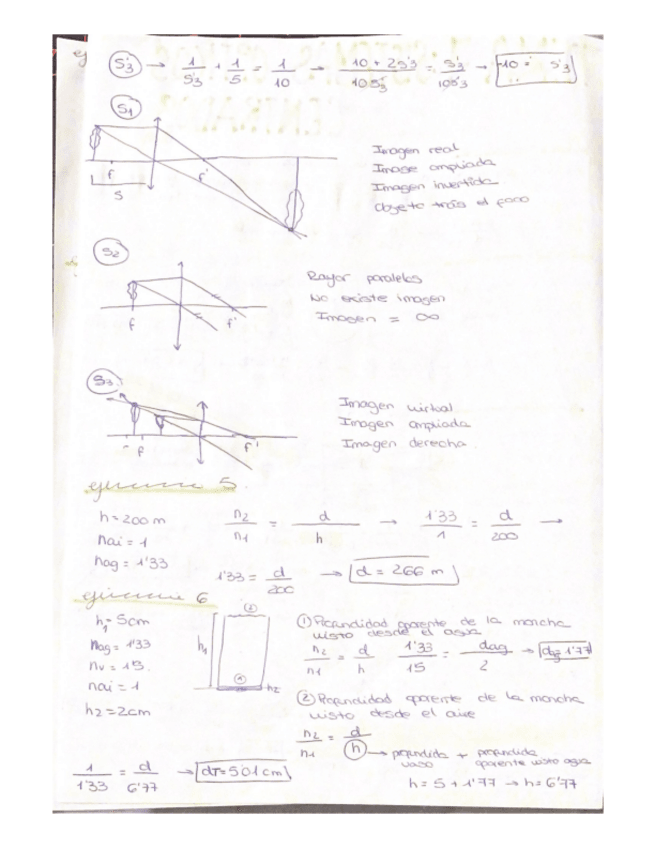 S'3 → 1/S'3 + 1/5 = 1/10 → 10 + 2S'3/10S'3 = S'3/10S'3 → -10 = S'3
S1
Imagen real
Image ampliada
Imagen invertida
Objeto trás el foco
f
f'
S
S2
Rayos paralelos
No existe imagen
Imagen = ∞
f
f'
S3
Imagen virtual
Imagen ampliada
Imagen derecha.
f
f'
ejercicio 5.
h = 200 m
nai = 1
nag = 1'33
n2/n1 = d/h → 1'33/1 = d/200 →
1'33 = d/200 → d = 266 m
ejercicio 6
h1 = 5cm
nag = 1'33
nv = 1'5.
nai = 1
h2 = 2cm
h1
②
①
h2
① Profundidad aparente de la mancha
visto desde el agua
n2/n1 = d/h 1'33/1'5 = dag/2 → d = 1'77
② Profundidad aparente de la mancha
visto desde el aire
n2/n1 = d/h → profundida vaso + profundida aparente visto agua
h = 5 + 1'77 → h = 6'77
1/1'33 = d/6'77 → dT = 5'01 cm